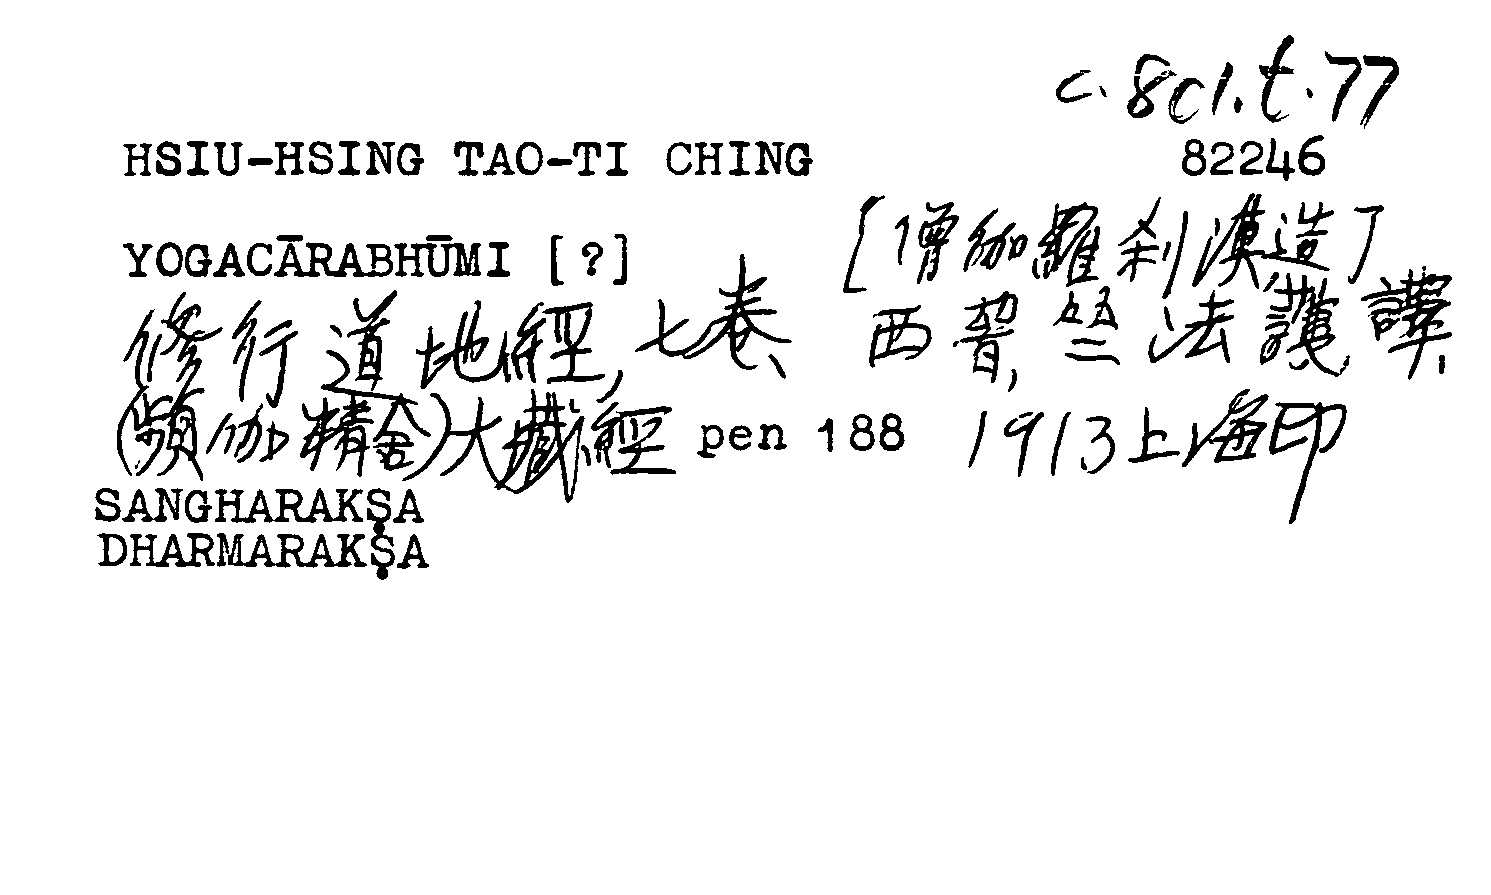 c.8c1.t.77
HSIU-HSING TAO-TI CHING 82246
YOGACĀRABHŪMI [?] [僧伽羅刹漢造]
修行道地經, 七卷、 西晉, 竺法護, 譯.
(頻伽精舍)大藏經 pen 188 1913上海印
SANGHARAKṢA
DHARMARAKṢA